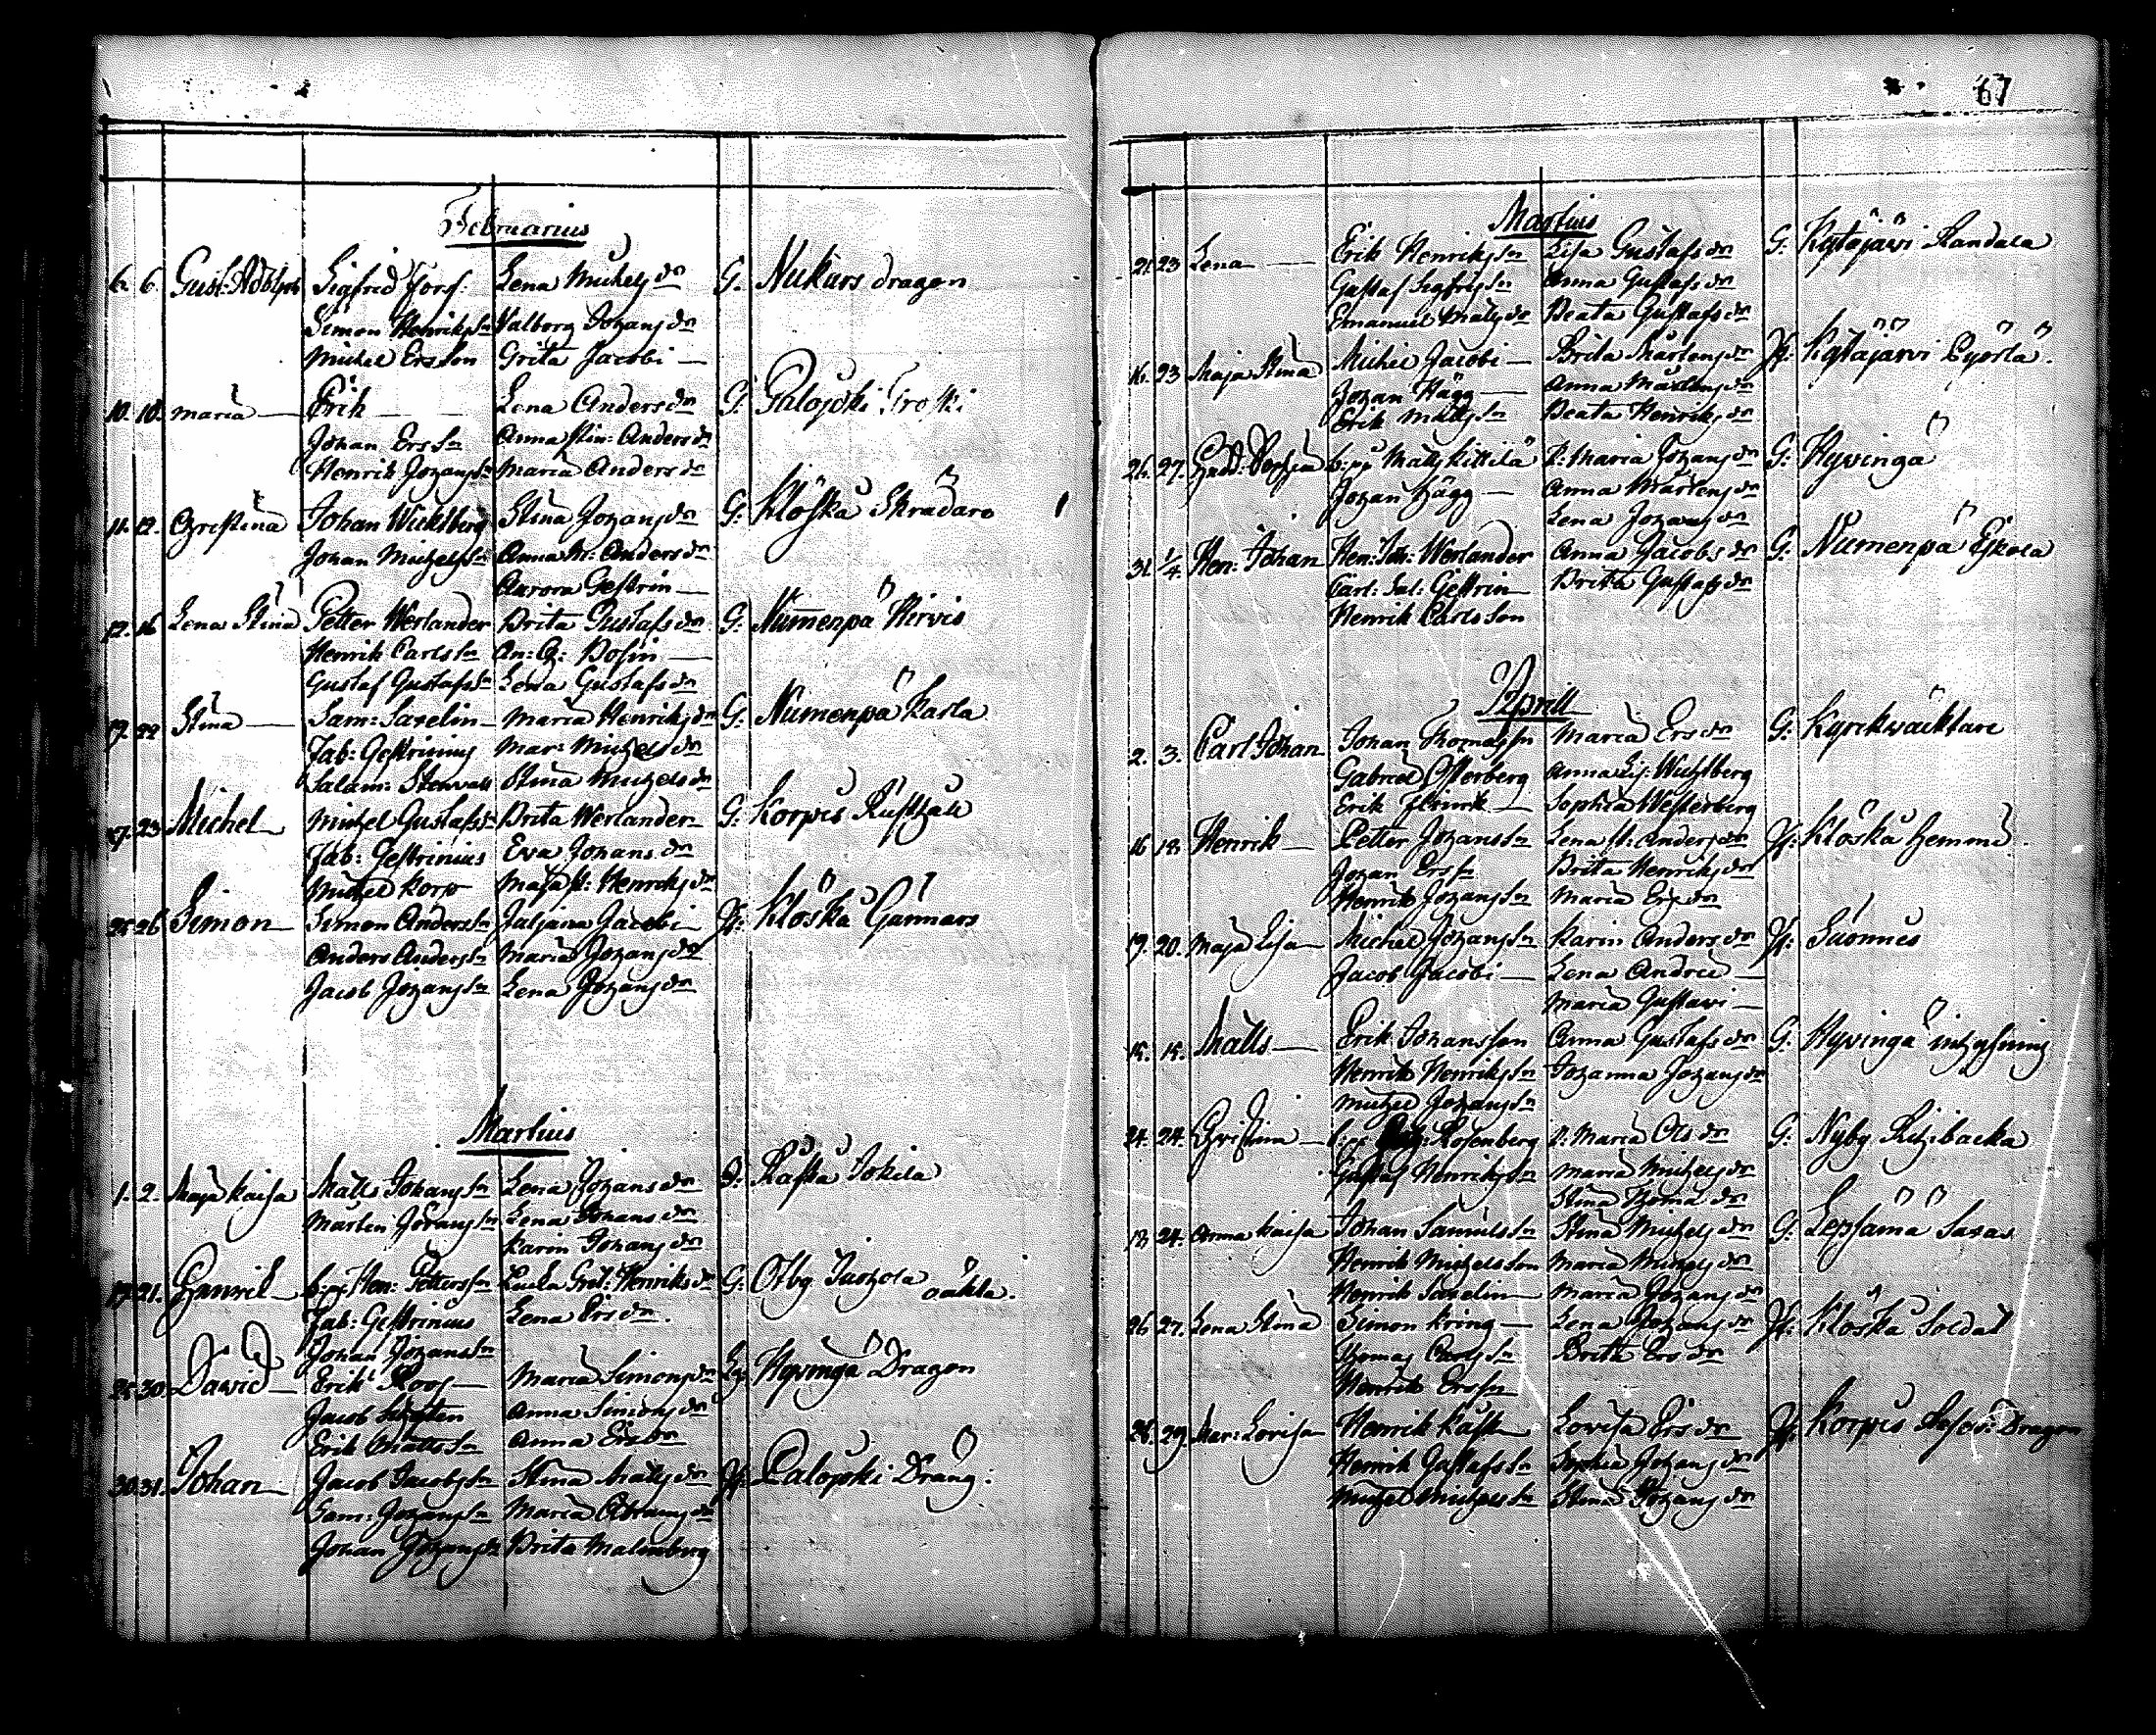 67
Februarius
6. 6. Gust: Adolph Sigfrid Jorſ: Lena Michelsdr G. Nukars dragon
Simon Henrikss: Valborg Johansdr
Michel Ersson Grita Jacobi
10. 10. Maria Erik Lena Andersdr G: Palojoki
Johan Erssn Anna Stin: Andersdr
Henrik Johanssn Maria Andersdr
11. 12. Christina Johan Wicktberg Stina Johansdr G: Klöskå Skrädare
Johan Michelssn Anna M: Andersdr
Aurora Gestrin
12. 16 Lena Stina Petter Werlander Brita Gustafsdr G: Numenpä Hirvis
Henrik Carlssn An: C:
Gustaf Gustafssn Lena Gustafsdr
17. 22 Stina Sam: Savelin Maria Henriksdr G: Numenpä Karla
Fab: Gestrinius Mar: Michelsdr
Salam: Stenvall Stina Michelsdr
17. 23 Michel Michel Gustafss: Brita Werlander G: Korpis Rusthåll
Fab: Gestrinius Eva Johansdr
Michel Korp Maja St: Henriksdr
25 26 Simon Simon Anderssn Juljana Jacobi H: Klöskå Gunnars
Anders Anderssn Maria Johansdr
Jacob Johanssn Lena Johansdr
Martius
1. 2. Maja Kaisa Matts Johanssn Lena Johansdr G: Raskå Jokela
Martin Johanssn Lena Johansdr
Karin Johansdr
17 21. Gabriel b: pg: Hen: Petterssn Gret: Henriksdr G: Otby Jushola oäkta.
Fab: Gestrinius Lena Ersdr.
Johan Johanssn
25 30 David Erik Roos Maria Simonsdr Hyvingä Dragon
Jacob Anna Simonsdr
Erik Mattssn Anna Ersdr
30. 31. Johan Jacob Jacobssn Stina Mattsdr H: Palojoki Dräng:
Sam: Johanssn Maria Abramsdr
Johan Johanssn Brita Malmberg
Martius
21. 23 Lena Erik Henrikssn Lisa Gustafsdr G: Kytäjärvi Randala
Gustaf Sigfrissn Anna Gustafsdr
Emanuel Beata Gustafsdr
16. 23 Maja Stina Michel Jacobi Brita Mårtensdr H: Kytäjärvi
Johan Hägg Anna Mårtensdr
Erik Mattssn Beata Henriksdr
26. 27. Gust: Sophia b: pg Matts Kittilä P: Maria Johansdr G: Hyvingä
Johan Hägg Anna Mårtensdr
Lena Johansdr
31. 1/4. Hen: Johan Hen: Joh: Werlander Anna Jacobsdr G: Numenpä Eskola
Carl: Jul: Gestrin Brita Gustafsdr
Henrik Carlsson
Aprill
2. 3. Carl Johan Johan Thomassn Maria Ersdr G: Kyrckwäcktare
Gabriel Österberg Anna Lis: Wichtberg
Erik Flinck Sophia Westerberg
16 18. Henrik Petter Johanssn Lena St: Andersdr H: Klöskå Hemme.
Johan Erssn Brita Henriksdr
Henrik Johanssn Maria Ersdr
19. 20. Maja Lisa Michel Johanssn Karin Andersdr H: Suomies
Jacob Jacobi Lena Andreæ
Maria Gustavi
15. 15. Matts Erik Johansson Anna Gustafsdr G: Hyvingä inhysning
Henrik Henrikssn Johanna Johansdr
Michel Johanssn
24. 24. Christina b: pg Rosenberg P: Maria Olsdr G: Nyby Rihibacka
Gustaf Henrikssn Maria Michelsdr
Stina Thomadr
18. 24. Anna Kaisa Johan Samuelssn Stina Michelsdr G: Lepsämä Savas
Henrik Michelsson Maria Michelsdr
Henrik Savelin Maria Johansdr
26 27. Lena Stina Simon Kring Lena Johansdr H: Klöskå Soldat
Thomas Carlssn Britta Ersdr
Henrik Erssn
28. 29. Mar: Lovisa Henrik Kask Lovisa Ersdr H: Korpis Dragon
Henrik Gustafssn Sophia Johansdr
Michel Michelssn Stina Johansdr